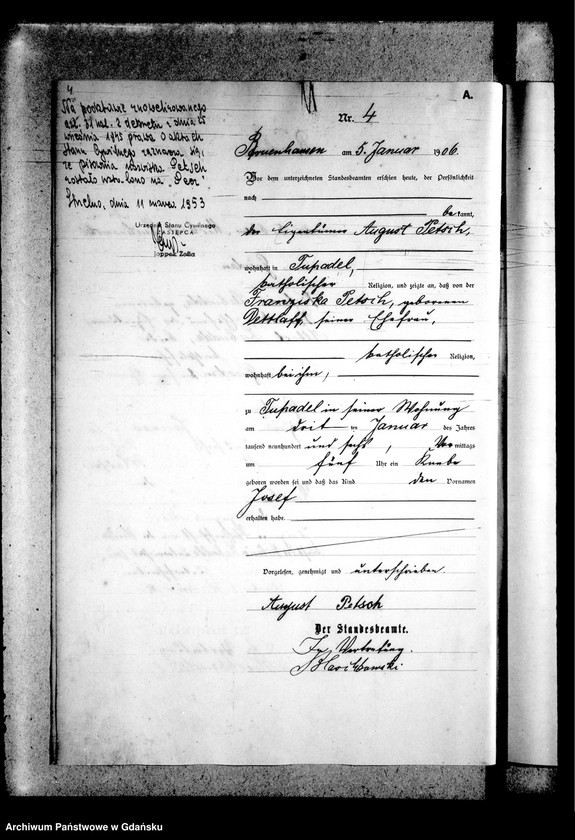 4
Na podstawie
art. 2 dekretu z dnia 25
września 1945 prawa o aktach
Stanu Cywilnego zaznacza się,
że pisownia nazwiska Petsch
została ustalono na
dnia 11 marca 1953
Urzędnik Stanu Cywilnego
ZASTĘPCA
Zofia
A.
Nr. 4
am 5. Januar 1906.
Vor dem unterzeichneten Standesbeamten erschien heute, der Persönlichkeit
nach
bekannt,
der Eigentümer August Petsch,
wohnhaft in Tupadel,
katholischer Religion, und zeigte an, daß von der
Franziska Petsch, geborenen
Dettlaff, seiner Ehefrau,
katholischer Religion,
wohnhaft bei ihm,
zu Tupadel in seiner Wohnung
am drit ten Januar des Jahres
tausend neunhundert und sechs, Vormittags
um fünf Uhr ein Knabe
geboren worden sei und daß das Kind den Vornamen
Josef
erhalten habe.
Vorgelesen, genehmigt und unterschrieben.
August Petsch
Der Standesbeamte.
In Vertretung.
Archiwum Państwowe w Gdańsku